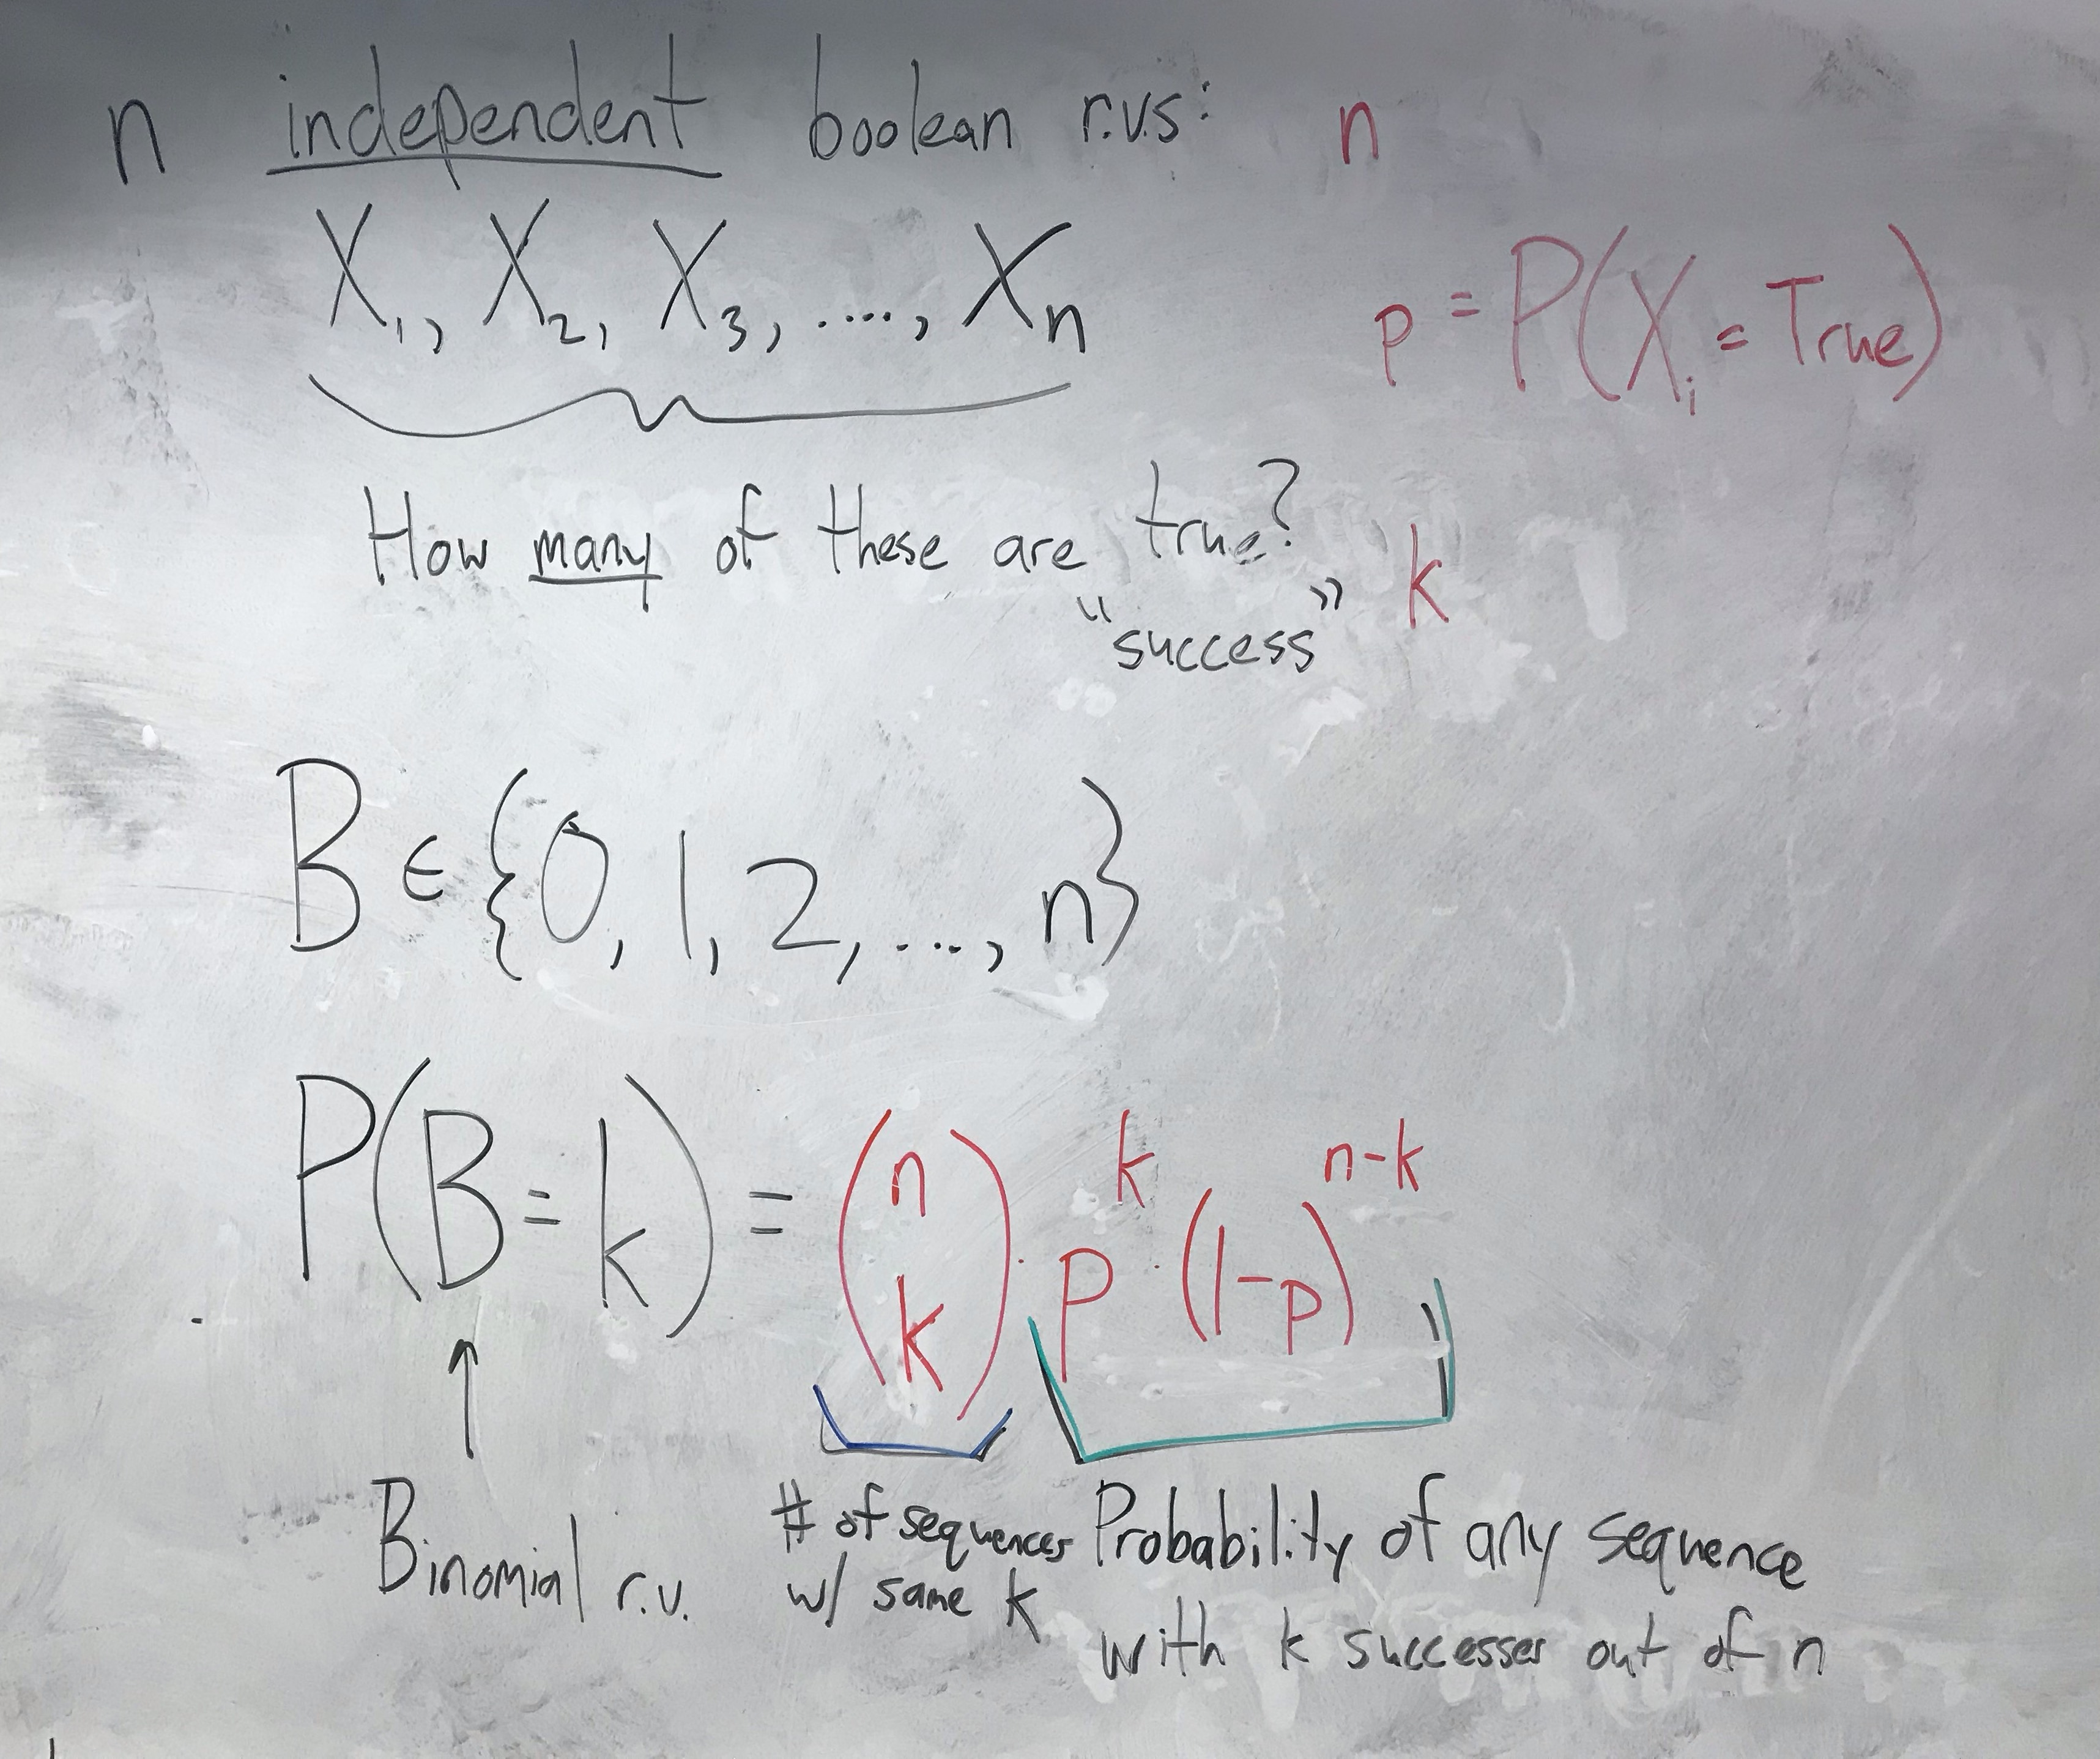 n independent boolean r.v.s: n
X₁, X₂, X₃, ...., Xₙ
p = P(Xᵢ = True)
How many of these are true? k
"success"
B ∈ {0, 1, 2, ..., n}
P(B = k) = (n k) · p^k · (1-p)^(n-k)
Binomial r.v.
# of sequences
w/ same k
Probability of any sequence
with k successes out of n